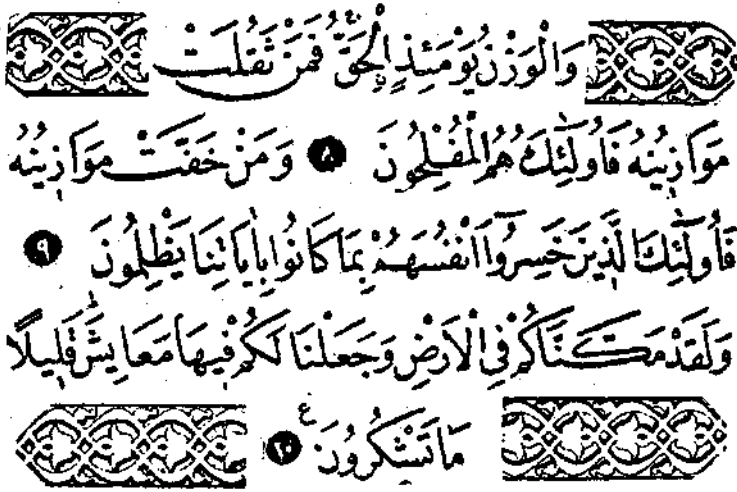 وَالْوَزْنُ يَوْمَئِذٍ الْحَقُّ ۚ فَمَنْ ثَقُلَتْ
مَوَازِينُهُ فَأُولَٰئِكَ هُمُ الْمُفْلِحُونَ ٨ وَمَنْ خَفَّتْ مَوَازِينُهُ
فَأُولَٰئِكَ الَّذِينَ خَسِرُوا أَنْفُسَهُمْ بِمَا كَانُوا بِآيَاتِنَا يَظْلِمُونَ ٩
وَلَقَدْ مَكَّنَّاكُمْ فِي الْأَرْضِ وَجَعَلْنَا لَكُمْ فِيهَا مَعَايِشَ ۗ قَلِيلًا
مَا تَشْكُرُونَ ع ١٠